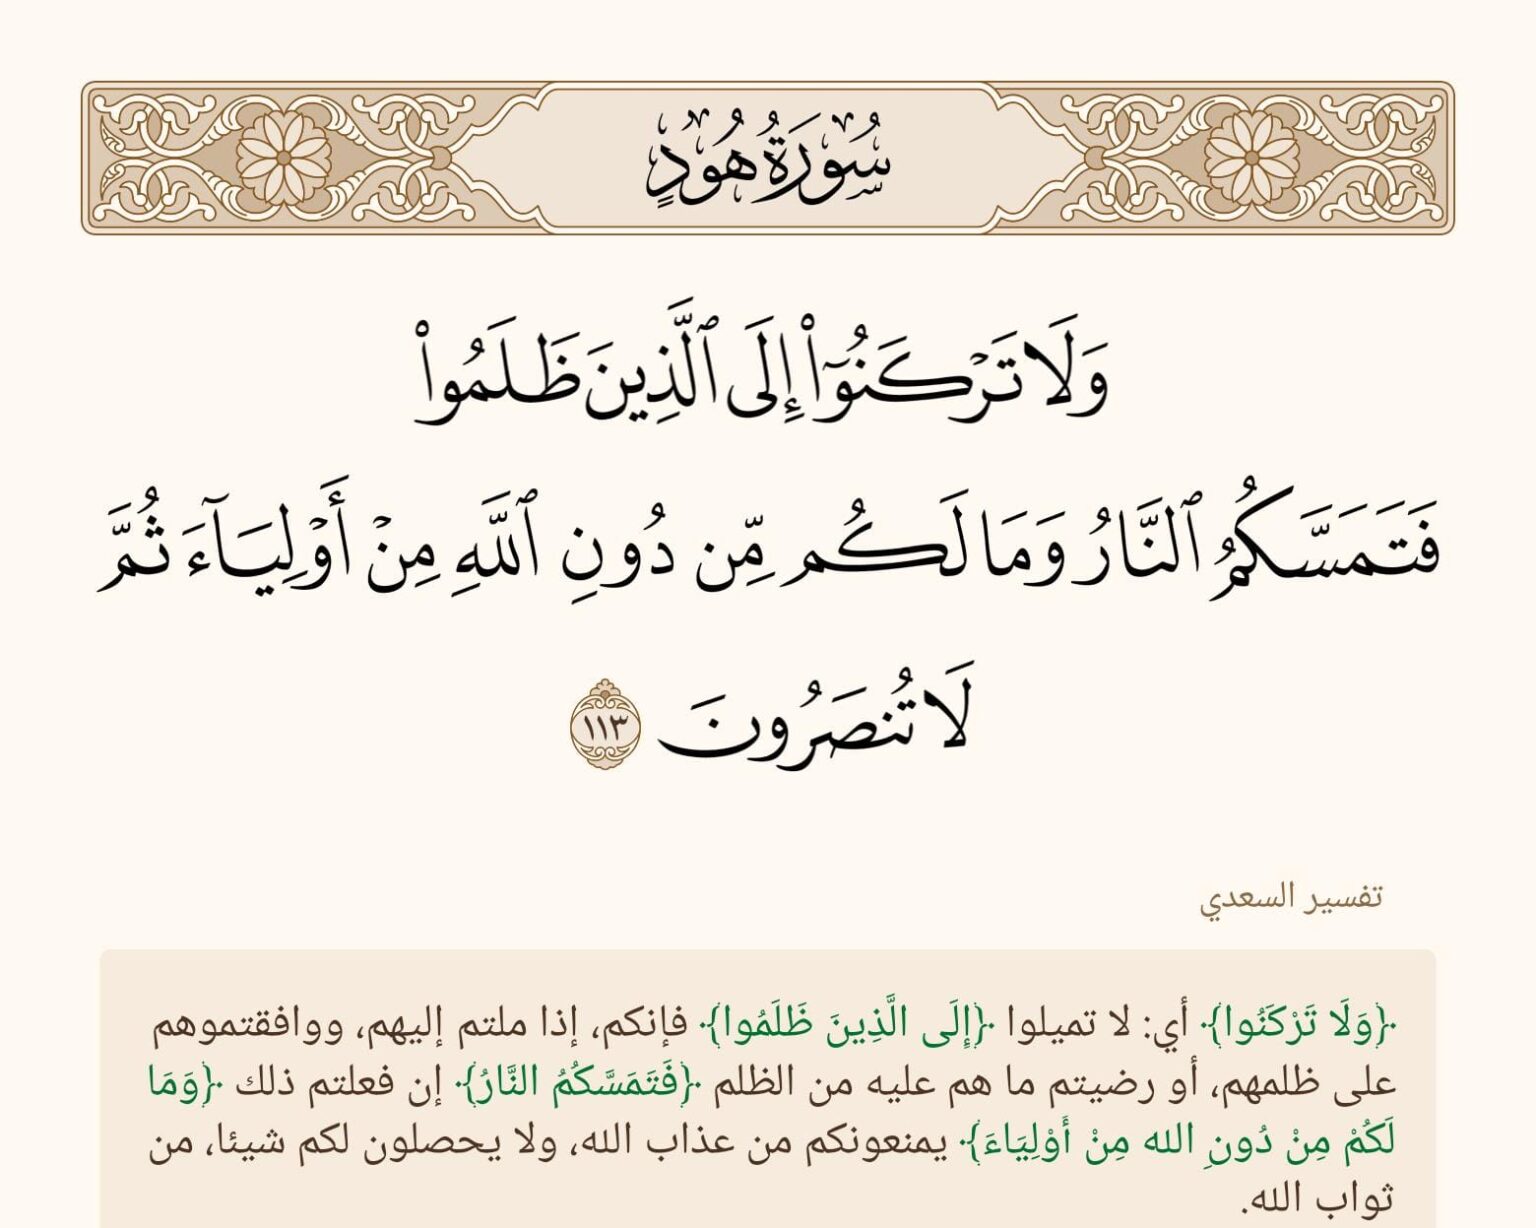 سُورَةُ هُودٍ
وَلَا تَرْكَنُوٓا۟ إِلَى ٱلَّذِينَ ظَلَمُوا۟
فَتَمَسَّكُمُ ٱلنَّارُ وَمَا لَكُم مِّن دُونِ ٱللَّهِ مِنْ أَوْلِيَآءَ ثُمَّ
لَا تُنصَرُونَ ١١٣
تفسير السعدي
﴿وَلَا تَرْكَنُوا﴾ أي: لا تميلوا ﴿إِلَى الَّذِينَ ظَلَمُوا﴾ فإنكم، إذا ملتم إليهم، ووافقتموهم
على ظلمهم، أو رضيتم ما هم عليه من الظلم ﴿فَتَمَسَّكُمُ النَّارُ﴾ إن فعلتم ذلك ﴿وَمَا
لَكُمْ مِنْ دُونِ الله مِنْ أَوْلِيَاءَ﴾ يمنعونكم من عذاب الله، ولا يحصلون لكم شيئا، من
ثواب الله.